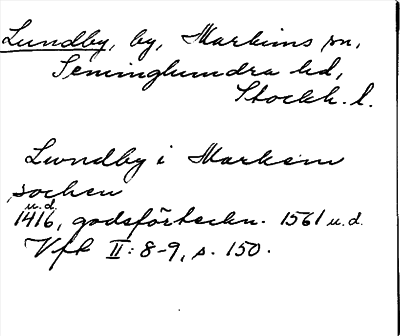 Lundby, by, Markims sn,
Seminghundra hd,
Stockh. l.
Lwndby i Markem
sochen
u.d.
1416, godsförteckn. 1561 u.d.
Vfr II: 8-9, s. 150.